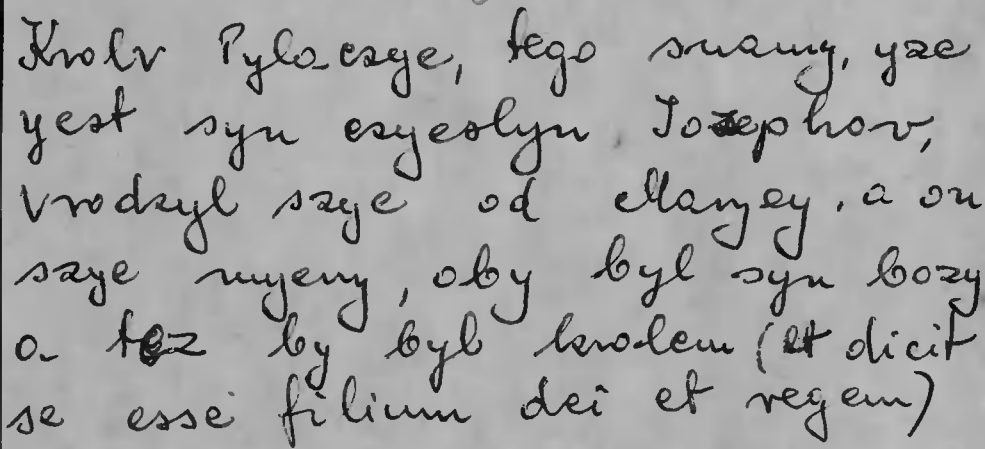 Krolv Pylaczye, tego snamy, yze
yest syn czyeslyn Iozephov,
vrodzyl szye od Maryey, a on
szye myeny, aby byl syn bozy
a tez by byl krolem (et dicit
se esse filium dei et regem)